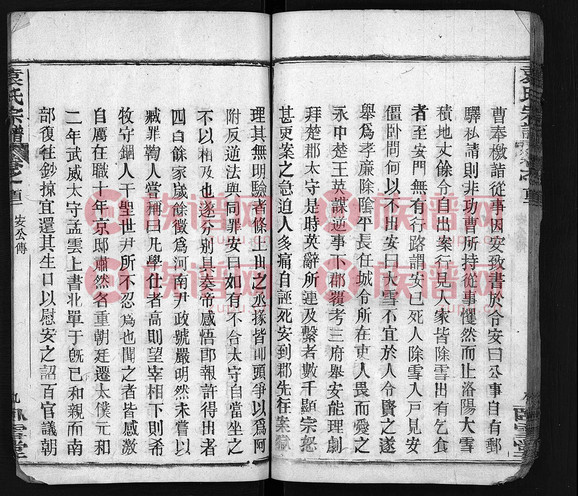 曹奉檄詣從事因安致書於令安曰公事自有郵
驛私請則非功曹所持從事懼然而止洛陽大雪
積地丈餘令自出案行見人家皆除雪出有乞食
者至安門無有行路謂安已死人除雪入戶見安
僵臥問何以不出安曰大雪不宜於人令賢之遂
舉爲孝廉除陰平長任城令所在吏人畏而愛之
永中楚王英謀逆事下郡覆考三府舉安能理劇
拜楚郡太守是時英辭所連及繫者數千顯宗怒
甚吏案之急迫人多痛自誣死安到郡先往案獄
理其無明驗者條上出之丞掾皆叩頭爭以爲阿
附反逆法與同罪安曰如有不合太守自當坐之
不以相及也遂分別具奏帝感悟即報許得出者
四百餘家歲餘徵爲河南尹政號嚴明然未嘗以
臧罪鞫人嘗稱曰凡學仕者高則望宰相下則希
牧守錮人于聖世尹所不忍爲也聞之者皆感激
自厲在職十年京邸肅然名重朝廷遷太僕元和
二年武威太守孟雲上書北單于旣已和親而南
部復往鈔掠宜還其生口以慰安之詔百官議朝
袁氏宗譜
卷之一
安公傳
九
臥雪堂
族谱网